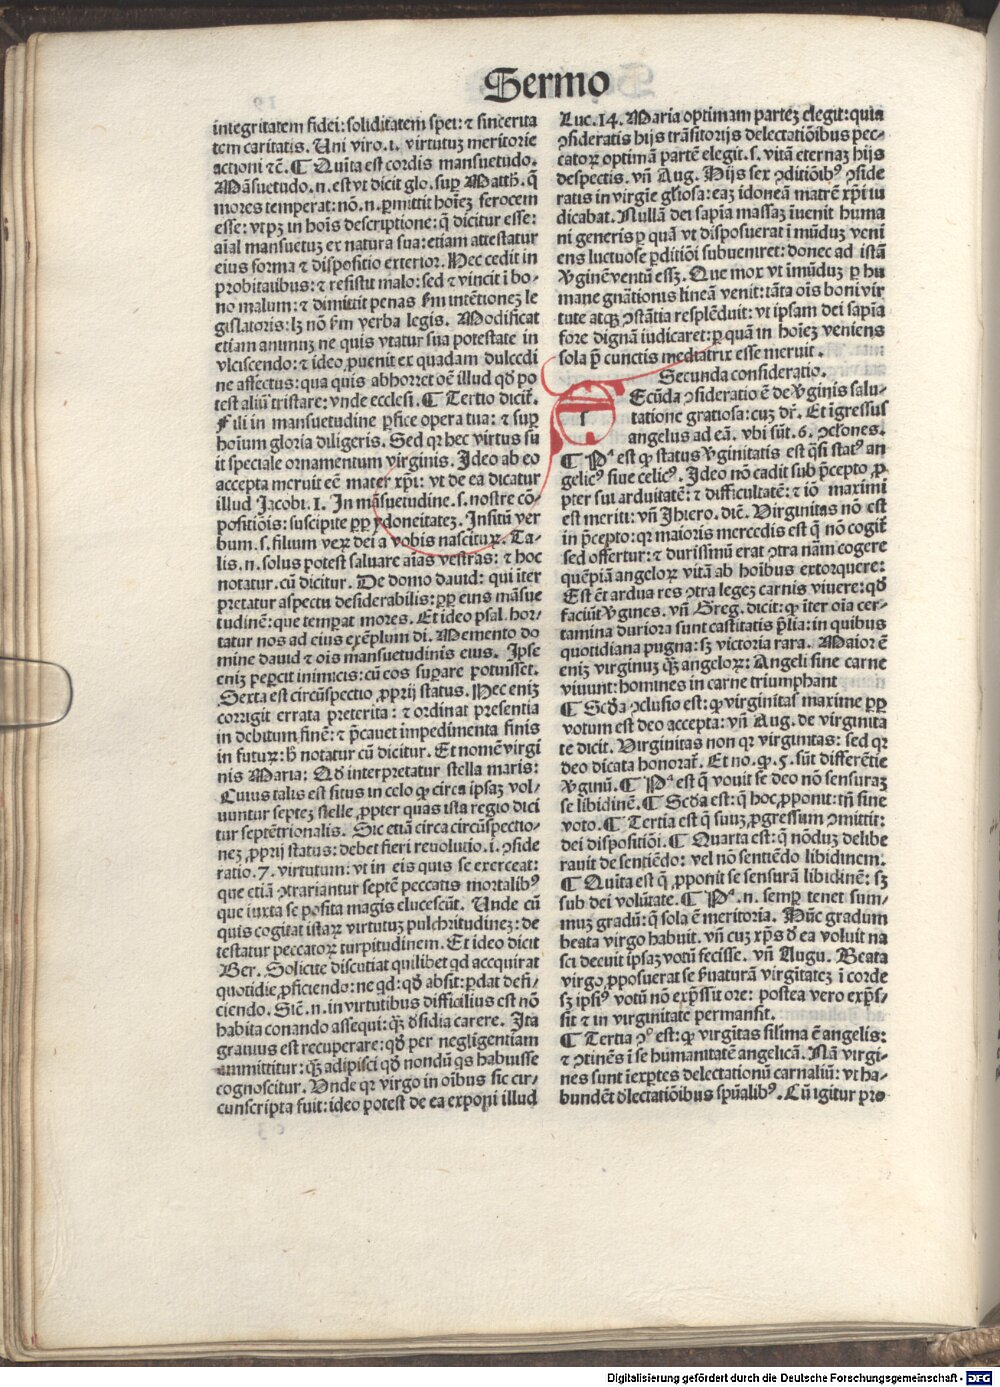 Sermo
integritatem fidei: soliditatem spei: ⁊ sincerita
tem caritatis. Uni viro .i. virtutuȝ meritorie
actioni ⁊c̄. ¶ Quīta est cordis mansuetudo.
Māsuetudo .n. est vt dicit glo. suꝑ Matth. q̄
mores temperat: nō .n. ꝑmittit hoīeȝ ferocem
esse: vtpȝ in hoīs descriptione: q̄ dicitur esse:
aīal mansuetuȝ ex natura sua: etiam attestatur
eius forma ⁊ dispositio exterior. Nec cedit in
probitatibus: ⁊ resistit malo: sed ⁊ vincit ī bo-
no malum: ⁊ dimittit penas ẜm intētioneȝ le
gislatoris: lȝ nō ẜm verba legis. Modificat
etiam animuȝ ne quis vtatur sua potestate in
vlciscendo: ⁊ ideo ꝓuenit ex quadam dulcedi
ne affectus: qua quis abhorret oē illud qđ po
test aliū tristare: vnde ecclesi. ¶ Tertio dicit̄.
Fili in mansuetudine ꝑfice opera tua: ⁊ suꝑ
hoīum gloria diligeris. Sed qꝛ hec virtus fu
it speciale ornamentum virginis. Ideo ab eo
accepta meruit eē mater xp̄i: vt de ea dicatur
illud Jacobi. 1. In māsuetudine .s. nostre cō-
positiōis: suscipite ꝓꝑ ydoneitateȝ. Insitū ver
bum .s. filium veꝝ dei a vobis nasciturꝝ. Ta-
lis .n. solus potest saluare aīas vestras: ⁊ hoc
notatur. cū dicitur. De domo dauid: qui īter
pretatur aspectu desiderabilis: ꝓꝑ eius māsue
tudinē: que temꝑat mores. Et ideo psal. hor-
tatur nos ad eius exēplum di. Memento do
mine dauid ⁊ oīs mansuetudinis eius. Ipse
eniȝ peꝑcit inimicis: cū eos suꝑare potuisset.
Sexta est circūspectio ꝓprij status. Nec eniȝ
corrigit errata preterita: ⁊ ordinat presentia
in debitum finē: ⁊ p̄cauet impedimenta finis
in futurꝝ: ħ notatur cū dicitur. Et nomē virgi
nis Maria: Qđ interpretatur stella maris:
Cuius talis est situs in celo ꝙ circa ipsaȝ vol-
uuntur septeȝ stelle, ꝓpter quas ista regio dici
tur septētrionalis. Sic etiā circa circūspectio-
neȝ ꝓprij status: debet fieri reuolutio .i. ꝯside
ratio. 7. virtutum: vt in eis quis se exerceat:
que etiā ꝯtrariantur septē peccatis mortalibꝰ
que iuxta se posita magis elucescūt. Unde cū
quis cogitat istaꝝ virtutuȝ pulchritudineȝ: de
testatur peccatoꝝ turpitudinem. Et ideo dicit
Ber. Solicite discutiat quilibet qd accquirat
quotidie ꝓficiendo: ne qd: qđ absit: ꝑdat defi-
ciendo. Sicē .n. in virtutibus difficilius est nō
habita conando assequi: q̄ȝ đsidia carere. Ita
grauius est recuperare: qđ per negligentiam
ammittitur: q̄ȝ adipisci qđ nondū qs habuisse
cognoscitur. Vnde qꝛ virgo in oībus sic cir-
cunscripta fuit: ideo potest de ea exponi illud
Luc. 14. Maria optimam parteȝ elegit: quia
ꝯsideratis hijs trāsitorijs delectatiōibus pec-
catoꝝ optimā partē elegit .s. vitā eternaȝ hijs
despectis. vn̄ Aug. Hijs sex ꝯditiōibꝰ ꝯside
ratis in virgīe gl̄iosa: eaȝ idoneā matrē xp̄i iu
dicabat. Nullā dei sapīa massaȝ īuenit huma
ni generis ꝑ quā vt disposuerat ī mūduȝ veni
ens luctuose ꝑditiōi subueniret: donec ad istā
v̄ginē ventū esȝ. Que mox vt īmūduȝ ꝑ hu
mane gn̄ationis lineā venit: tāta oīs boni vir
tute atqȝ ꝯstātia resplēduit: vt ipsam dei sapīa
fore dignā iudicaret: ꝑ quā in hoīeȝ veniens
sola p̄ cunctis mediatrix esse meruit.
Secunda consideratio.
Ecūda ꝯsideratio ē de v̄ginis salu-
tatione gratiosa: cuȝ dr̄. Et īgressus
angelus ad eā. vbi sūt. 6. ꝯclones.
¶ Pᵃ est ꝙ status v̄ginitatis est q̄si statꝰ an
gelicꝰ siue celicꝰ. Ideo nō cadit sub p̄cepto ꝓ
pter sui arduitatē: ⁊ difficultatē: ⁊ iō maximi
est meriti: vn̄ Jhiero. dic̄. Virginitas nō est
in p̄cepto: qꝛ maioris mercedis est q̄ nō cogit̄
sed offertur: ⁊ durissimū erat ꝯtra nām cogere
quēpiā angeloꝝ vitā ab hoībus extorquere:
Est ēt ardua res ꝯtra legeȝ carnis viuere: qđ
faciūt v̄gines. vn̄ Greg. dicit: ꝙ īter oīa cer-
tamina duriora sunt castitatis p̄lia: in quibus
quotidiana pugna: sȝ victoria rara. Maior ē
eniȝ virginuȝ q̄ȝ angeloꝝ: Angeli sine carne
viuunt: homines in carne triumphant
¶ Scđa ꝯclusio est: ꝙ virginitas maxime ꝓꝑ
votum est deo accepta: vn̄ Aug. de virginita
te dicit. Virginitas non qꝛ virginitas: sed qꝛ
deo dicata honorat̄. Et no. ꝙ. 5. sūt differētie
v̄ginū. ¶ Pᵃ est q̄ vouit se deo nō sensuraȝ
se libidinē. ¶ Scđa est: q̄ hoc ꝓponit: tn̄ sine
voto. ¶ Tertia est q̄ suuȝ ꝓgressum ꝯmittit:
dei dispositiōi. ¶ Quarta est: q̄ nōduȝ delibe
rauit de sentiēdo: vel nō sentiēdo libidinem:
¶ Quīta est q̄ ꝓponit se sensurā libidinē: sȝ
sub dei volūtate. ¶ Pᵃ .n. semꝑ tenet sum-
muȝ gradū: q̄ sola ē meritoria. Hūc gradum
beata virgo habuit. vn̄ cuȝ xp̄s đ ea voluit na
sci decuit ipsaȝ votū fecisse. vn̄ Augu. Beata
virgo ꝓposuerat se ẜuaturā virgītateȝ ī corde
sȝ ipsꝰ votū nō exp̄ssit ore: postea vero exp̄s-
sit ⁊ in virginitate permansit.
¶ Tertia ꝯᵒ est: ꝙ virgītas silima ē angelis:
⁊ ꝯtinēs ī se humanitatē angelicā. Nā virgi-
nes sunt īexꝑtes delectationū carnaliū: vt ha-
bundēt đlectatiōibus sp̄ualibꝰ. Cū igitur pro
Digitalisierung gefördert durch die Deutsche Forschungsgemeinschaft - DFG